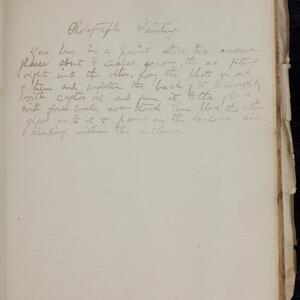 Photograph Painting.
You buy in a paint store two convex
glasses about 4 inches square, the one fitting
right into the other. Lay the photo on one
of them and moisten the back of it thoroughly
with castor oil and gum it to the glass
with first made starch. Then place the other
glass on to it & paint on the convex side
keeping within the outlines.